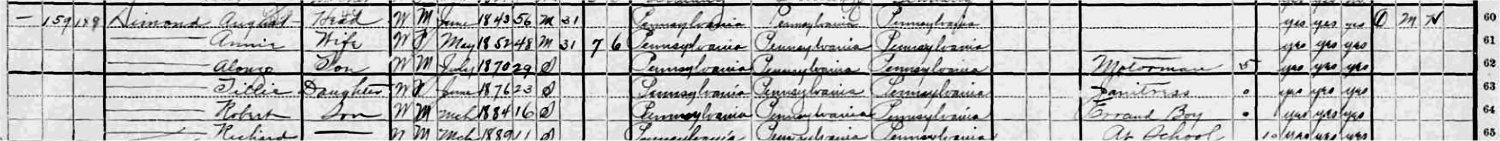 159 188 Dimond August Head W M June 1843 56 M 31 Pennsylvania Pennsylvania Pennsylvania yes yes yes O M H 60
Annie Wife W F May 1852 48 M 31 7 6 Pennsylvania Pennsylvania Pennsylvania yes yes yes 61
Alonzo Son W M July 1870 29 S Pennsylvania Pennsylvania Pennsylvania Motorman 5 yes yes yes 62
Tillie Daughter W F June 1876 23 S Pennsylvania Pennsylvania Pennsylvania Janitress 0 yes yes yes 63
Robert Son W M Mch 1884 16 S Pennsylvania Pennsylvania Pennsylvania Errand Boy 0 yes yes yes 64
Richard W M Mch 1889 11 S Pennsylvania Pennsylvania Pennsylvania At School 10 yes yes yes 65